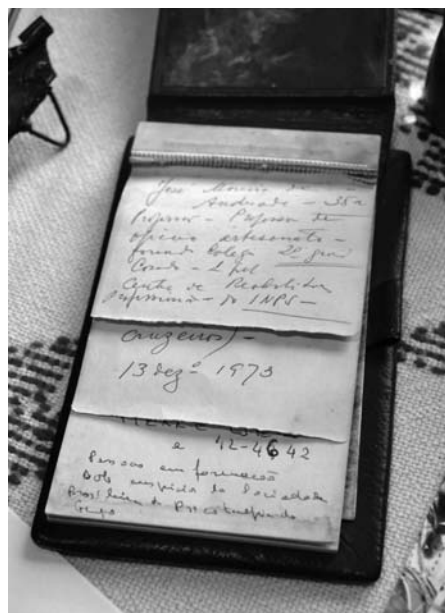 José Moreira de
Andrade – 35a
Professor – Professor de
ofícios artesanato –
formado Colégio 2º grau
Casado – 1 fil
Centro de Reabilitação
Profissional – do INPS –
cruzeiros) –
13 dezº 1973
e 42-4642
Pessoas em formação
Sob auspícios da Sociedade
Brasileira de Psicoterapia de
Grupo